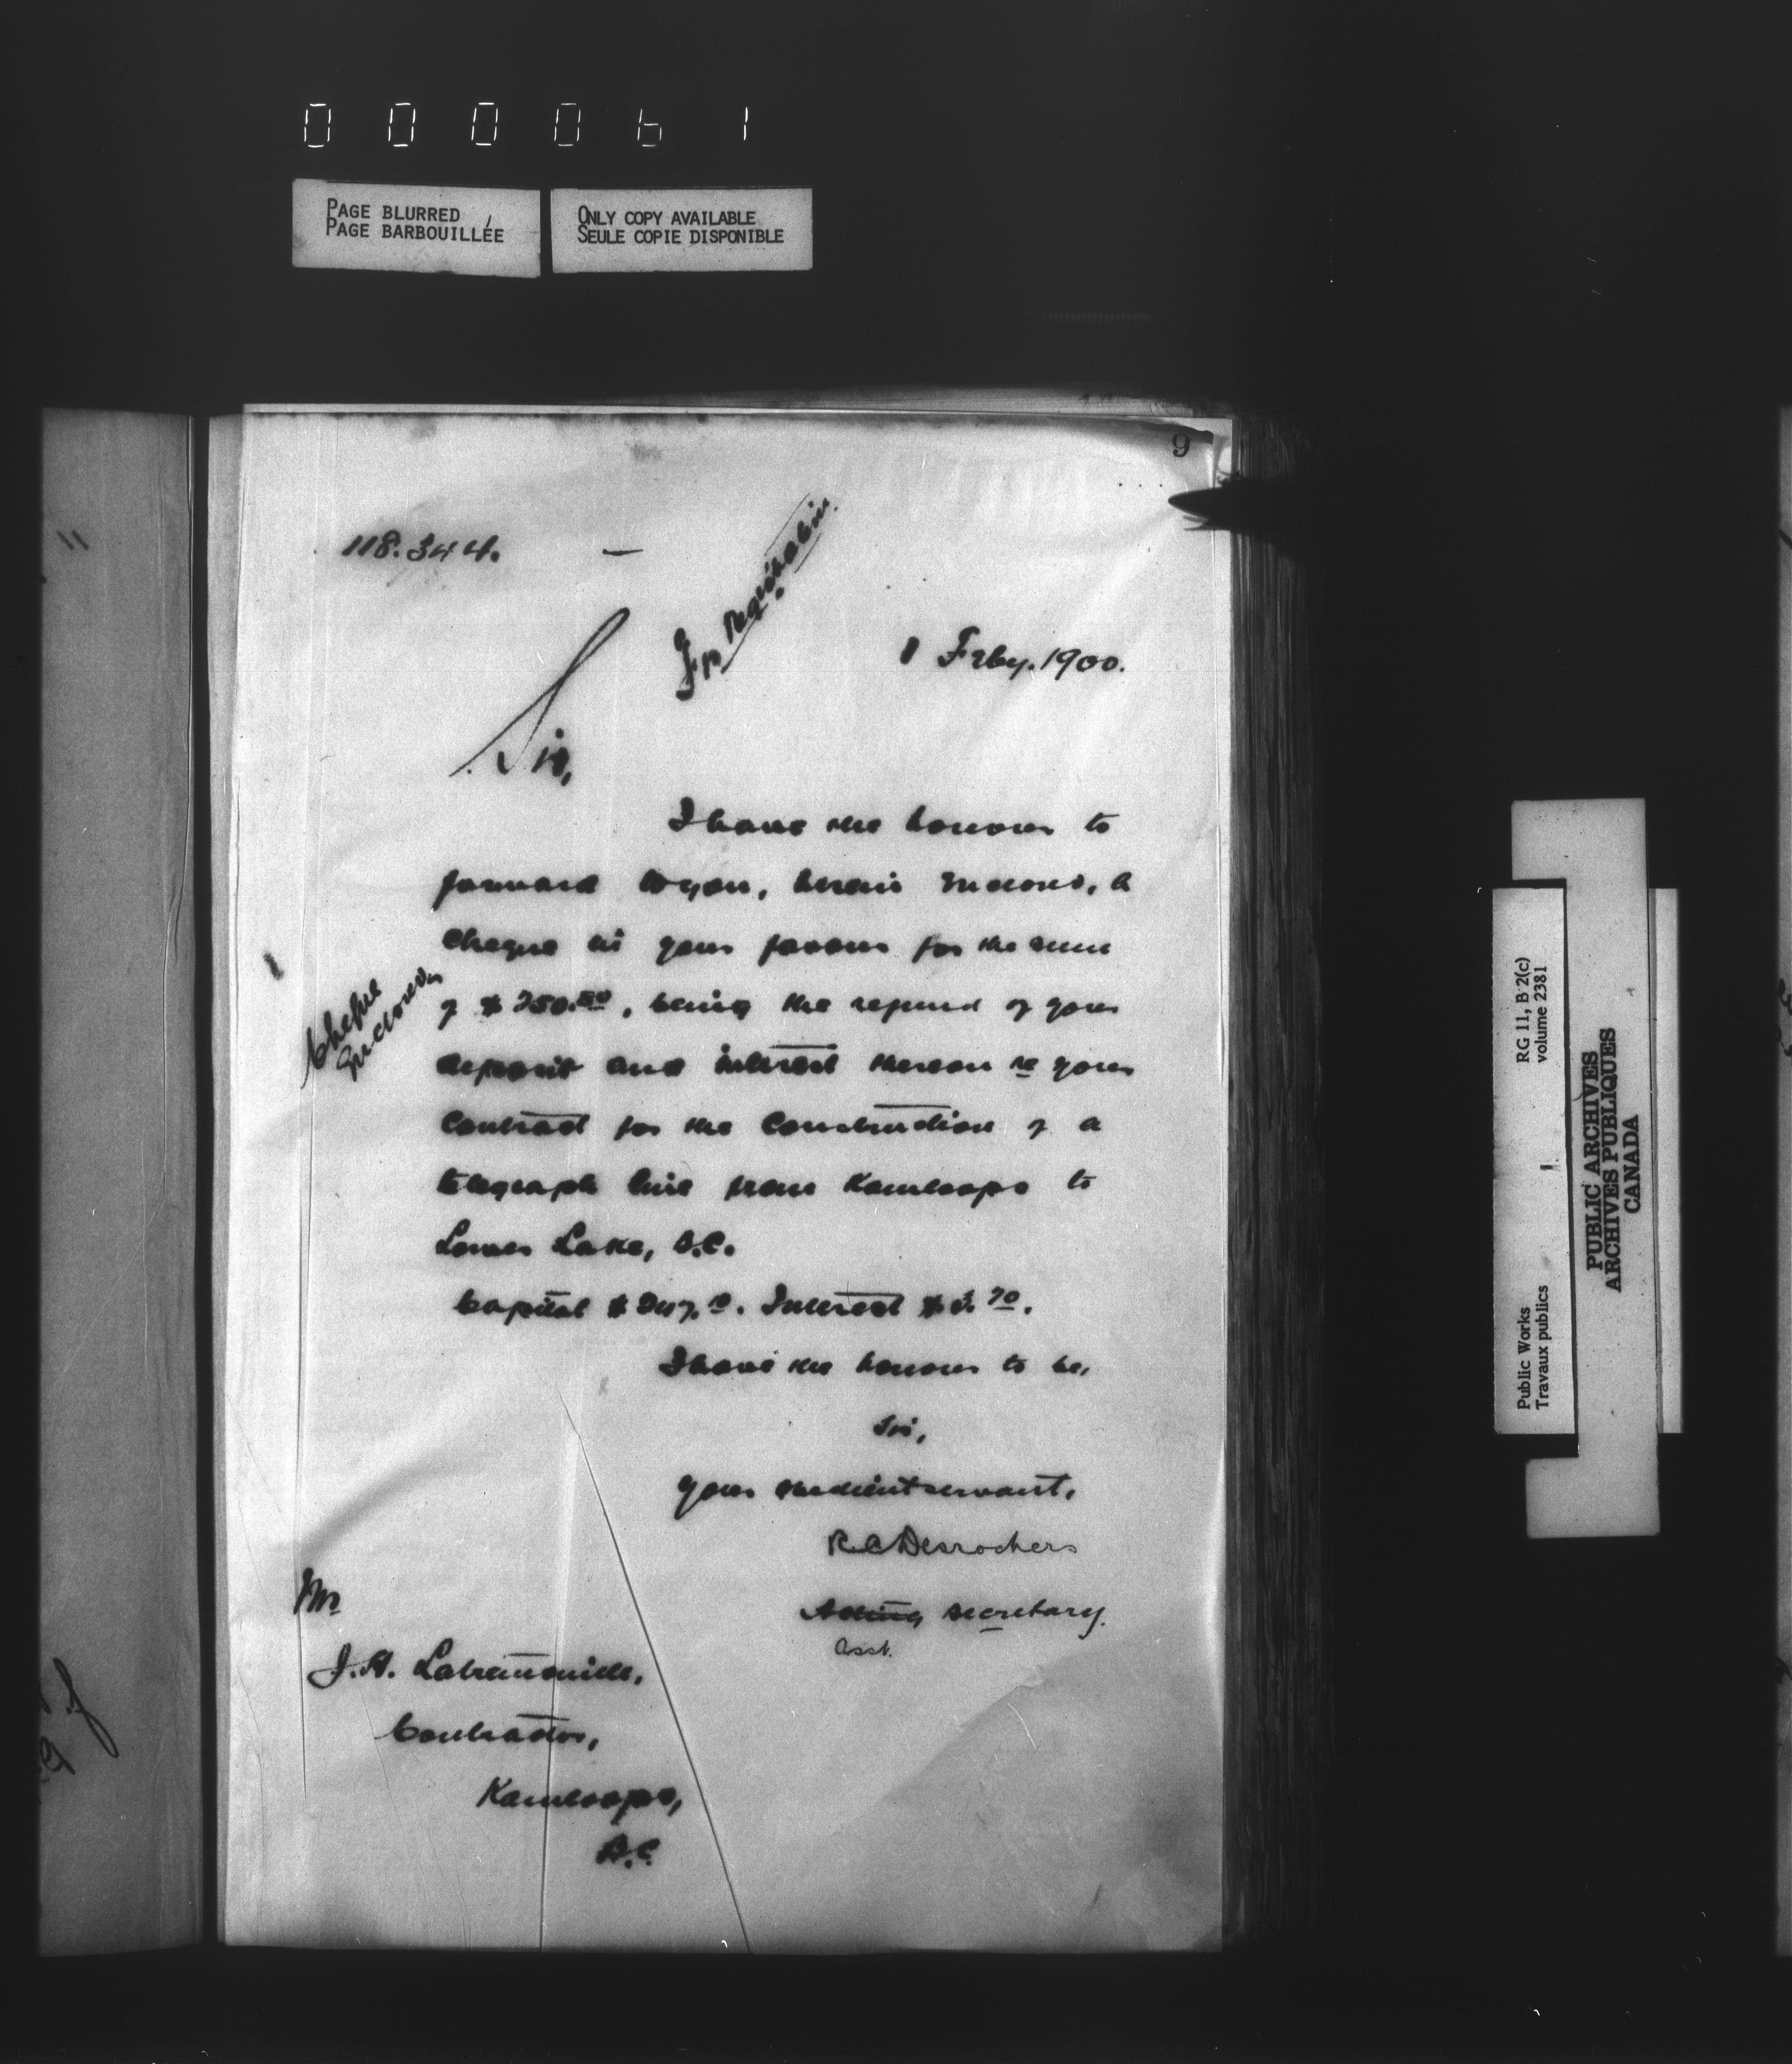 000061
PAGE BLURRED
PAGE BARBOUILLÉE
ONLY COPY AVAILABLE
SEULE COPIE DISPONIBLE
9
118.344.
1 Feby. 1900.
Sir,
I have the honour to
forward to you, herein enclosed, a
cheque in your favour for the sum
of $250.80, being the refund of your
deposit and interest thereon re your
Contract for the Construction of a
telegraph line from Kamloops to
Lower Lake, B.C.
Cheque
Enclosed
Capital $247.10. Interest $3.70.
I have the honour to be,
Sir,
Your obedient servant,
R C Desrochers
Acting Secretary.
Asst.
Mr
J. H. Latremouille,
Contractor,
Kamloops,
B.C.
Public Works
Travaux publics
RG 11, B 2(c)
volume 2381
PUBLIC ARCHIVES
ARCHIVES PUBLIQUES
CANADA